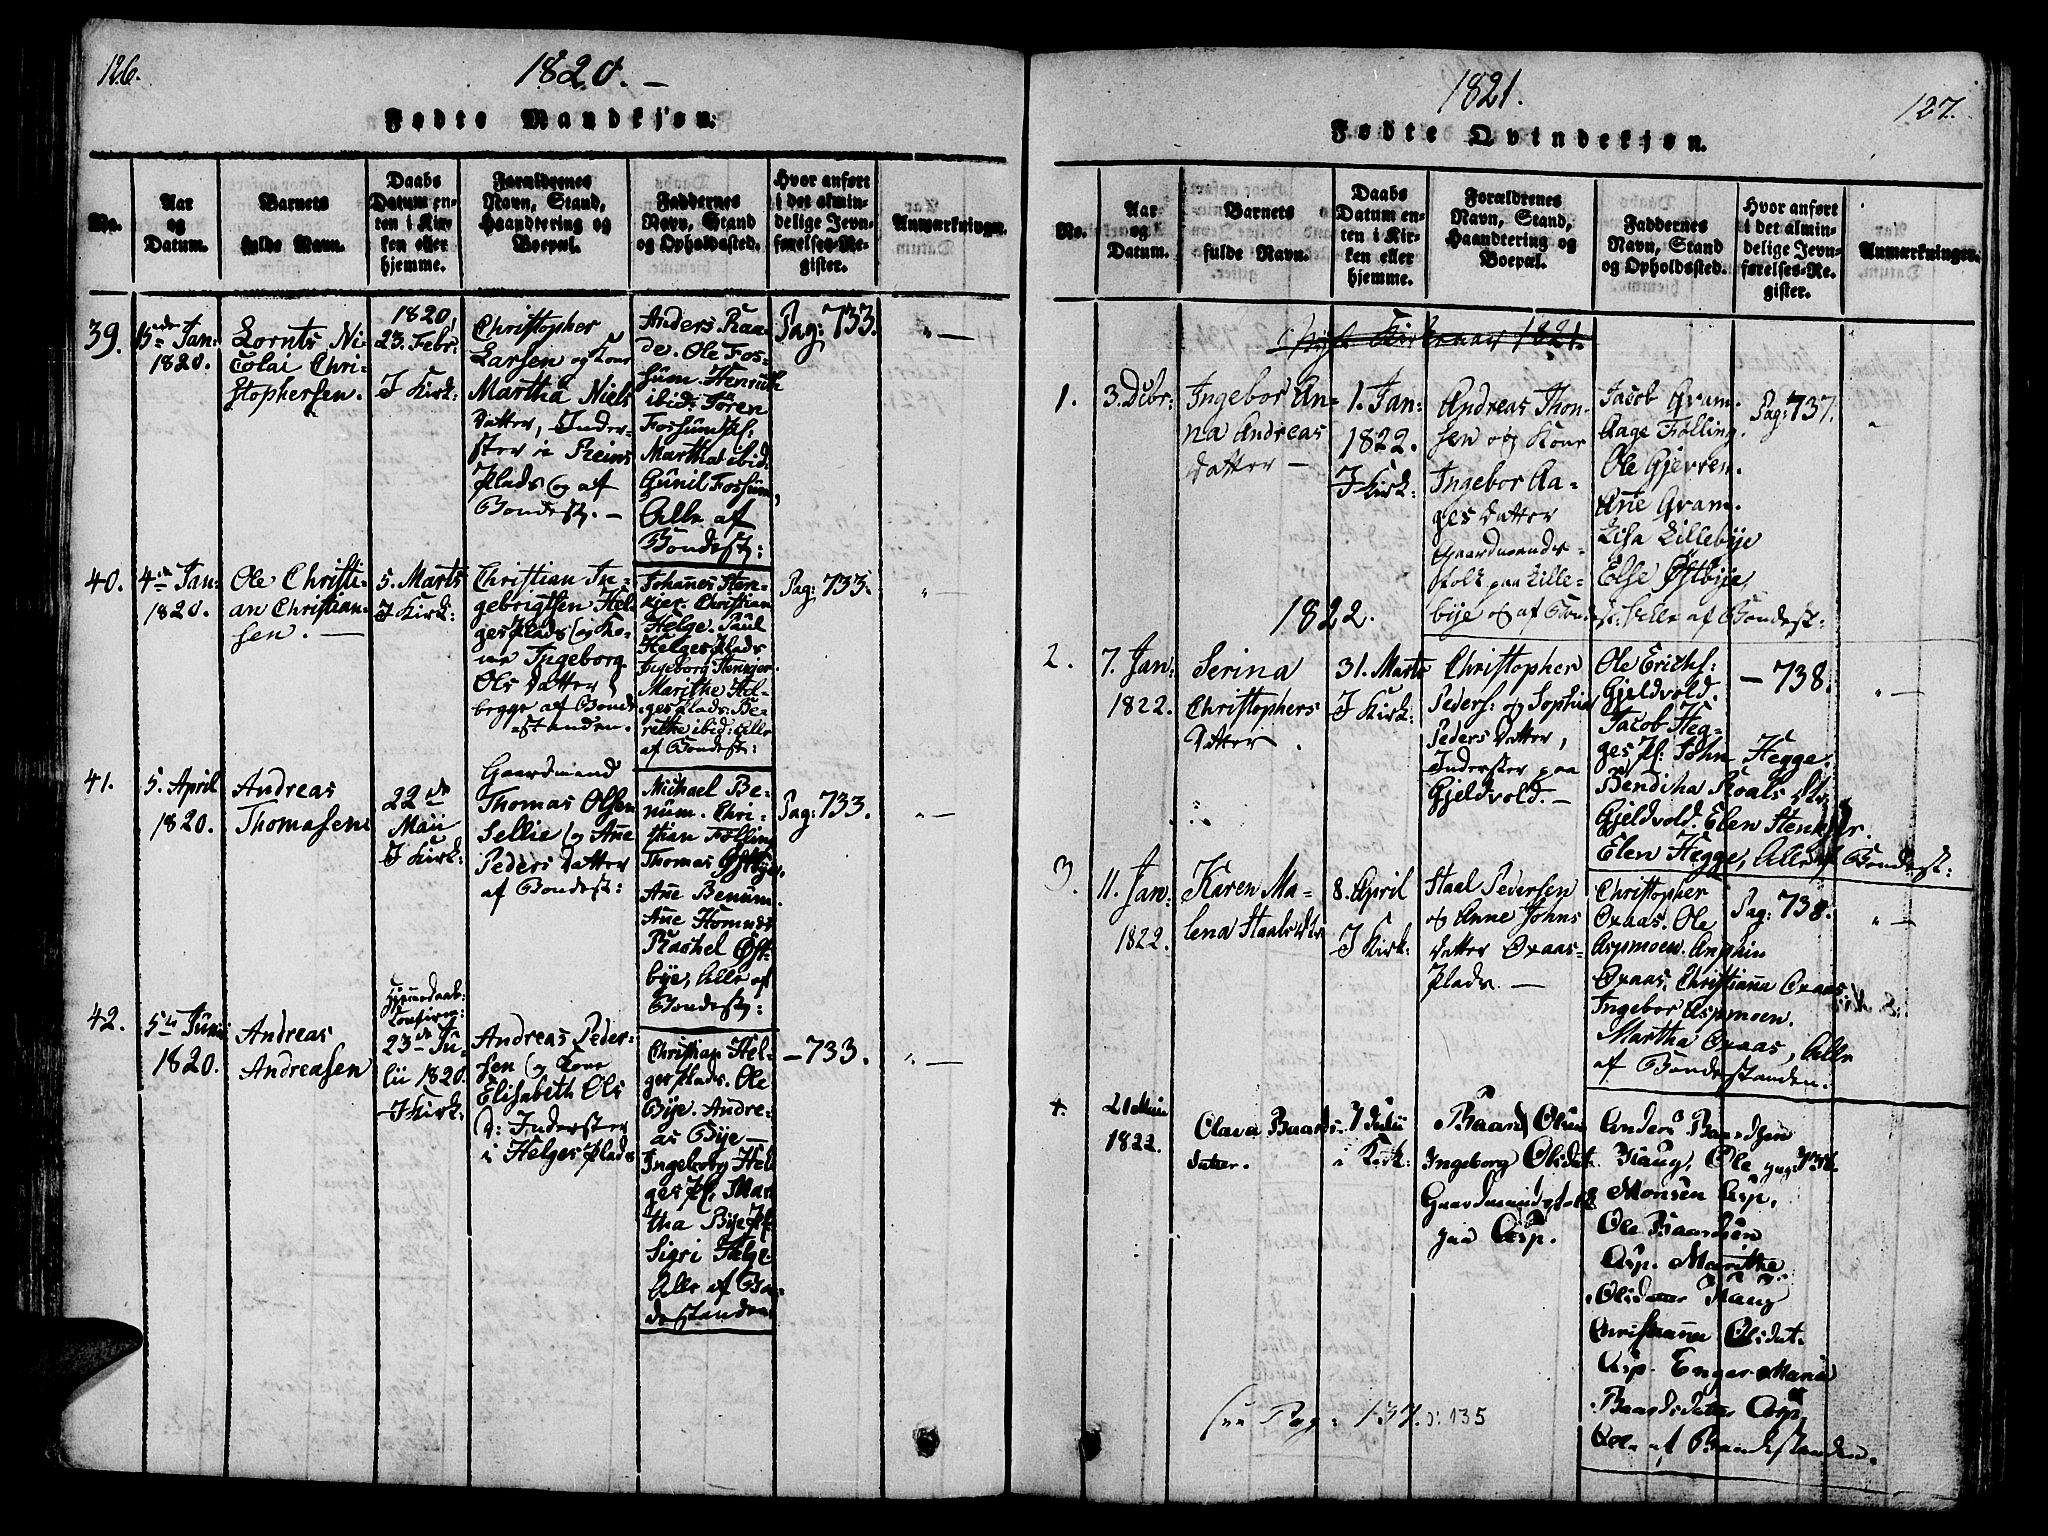 126.
1820. —
Fødte Mandkjøn.
No.
Aar
og
Datum.
Barnets
fulde Navn.
Daabs
Datum en-
ten i Kir-
ken eller
hjemme.
Forældrenes
Navn, Stand,
Haandtering og
Boepæl.
Faddernes
Navn, Stand
og Opholdssted.
Hvor anført
i det almin-
delige Jevn-
førelses-Re-
gister.
Anmærkninger.
39.
15de Jan:
1820.
Lornts Ni-
colai Chri-
stophersen.
1820,
23. Febr:
I Kirk:
Christopher
Larsen og Kone
Martha Niels
datter, Inder-
ster i Reins
plads og af
Bondest. —
Anders Raa-
de. Ole Fos-
sum. Henrich
ibid: Sören
Fossumspl:
Martha ibid:
Gunil Fossum,
Alle af
Bondest:
Pag: 733.
" —
40.
4de Jan:
1820.
Ole Christi-
an Christian-
sen. —
5. Marts
I Kirk:
Christian In-
gebrigtsen Hel-
gesplads og Ko-
ne Ingeborg
Ols datter,
begge af Bonde
standen.
Johannes Sten-
kjer. Christian
Helge. Paul
Helgesplads
Ingeborg Stenkjer.
Marithe Hel-
gesplads. Be-
rethe ibid: Alle
af Bondest:
Pag: 733.
" —
41.
5. April
1820.
Andreas
Thomasen
22de
Maii
I Kirk:
Gaardmand
Thomas Olsen
Sellie og Ane
Peders datter
af Bondest:
Michael Be-
num. Chri-
stian Fölling
Thomas Østbye.
Ane Benum.
Ane Homnes
Rachel Øst-
bye, Alle af
Bondest:
Pag: 733.
" —
42.
5te Junii
1820.
Andreas
Andreasen
Hjemmedaab:
Confirm:
23de Ju-
lii 1820.
I Kirk:
Andreas Peder-
sen og Kone
Elisabeth Ols
d: Inderster
i Helges plads
Christian Hel-
gesplads. Ole
Bye. Andre-
as Bye —
Ingeborg Hel
ges pl. Mar
tha Bye pl
Sigri Helge
Alle af Bon-
destanden
— 733.
" —
1821.
127.
Fødte Qvindekjøn.
No.
Aar
og
Datum.
Barnets
fulde Navn.
Daabs
Datum en-
ten i Kir-
ken eller
hjemme.
Forældrenes
Navn, Stand,
Haandtering og
Boepæl.
Faddernes
Navn, Stand
og Opholdssted.
Hvor anført
i det almin-
delige Jevn-
førelses-Re-
gister.
Anmærkninger.
Kirkeaar 1821.
1.
3. Debr:
Ingebor An-
na Andreas
datter —
1. Jan-
1822.
I Kirk:
Andreas Thon-
sen og Kone
Ingebor Aa-
ges datter
Gaardmands-
folk paa Lille-
bye og af Bondest:
Jacob Gram.
Aage Fölling.
Ole Gjerren.
Ane Gram.
Lisa Lillebye
Else Østbye,
Alle af Bondest:
Pag: 737.
"
1822.
2.
7. Jan:
1822.
Serina
Christophers
datter.
31. Marts
I Kirk:
Christopher
Peders: og Sophia
Peders datter,
Inderster paa
Gjeldvold. —
Ole Erichs:
Gjeldvold.
Jacob Heg-
ges pl: John Hegge.
Bendicha Roals dtr
Gjeldvold. Elen Stenkjer.
Elen Hegge, Alle af Bondest:
— 738.
" —
3.
11. Jan:
1822.
Karen Ma-
lena Staals dtr
8. April
I Kirk:
Staal Pedersen
og Anne Johns
datter Oxaas-
plads. —
Christopher
Oxaas. Ole
Aspmoen. Anphin
Oxaas, Christianna Oxaas
Ingebor Aspmoen.
Martha Oxaas, Alle
af Bondestanden.
Pag: 738.
" —
4.
1822.
Olava Baards-
datter.
7 Julii
i Kirk:
Baard Olsen
Ingeborg Olsdat.
Gaardmandsfolk
paa Asp.
Anders Baardsen
Haug, Ole
Monsen Asp,
Ole Baardsen
Asp. Marithe
Olsdatter Haug
Christianna Olsdat.
Asp. Enger Maria
Baardsdatter Asp
Alle af Bondestanden.
pag: 738.
see Pag: 137. o: 135